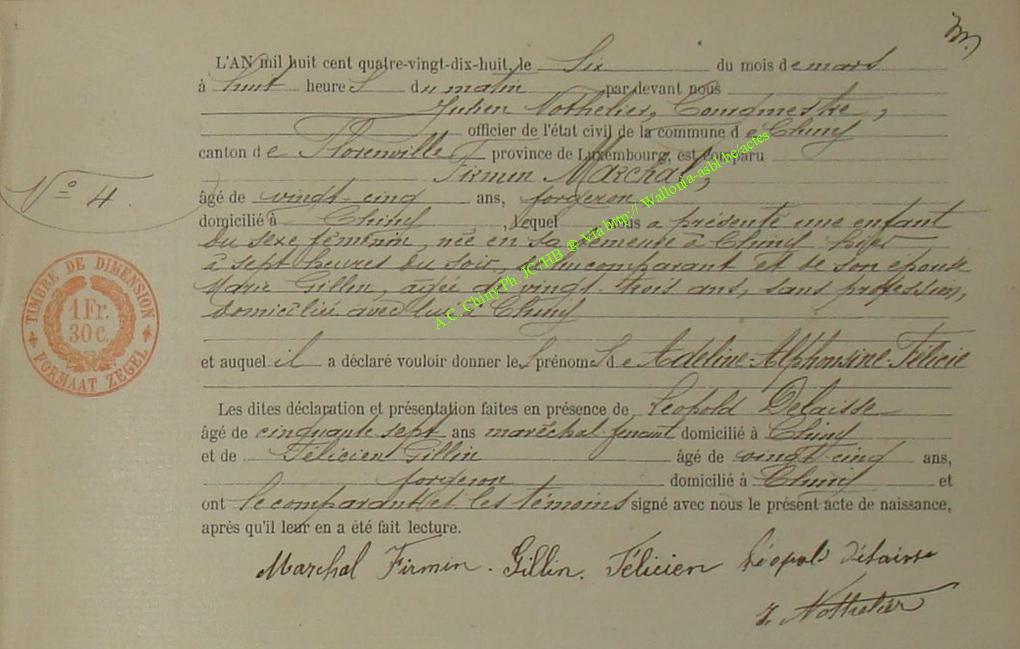 L'AN mil huit cent quatre-vingt-dix-huit, le Six du mois de mars
à huit heures du matin par devant nous
Julien Nothelier, Bourgmestre,
officier de l'état civil de la commune de Chiny
canton de Florenville province de Luxembourg, est comparu
Firmin Marchal,
N° 4.
âgé de vingt-cinq ans, forgeron
domicilié à Chiny, lequel nous a présenté une enfant
du sexe féminin, née en sa demeure à Chiny hier
à sept heures du soir, de lui comparant et de son épouse
Marie Gillin, agée de vingt-trois ans, sans profession,
domiciliée avec lui à Chiny
et auquel il a déclaré vouloir donner les prénoms de Adeline-Alphonsine-Félicie
Les dites déclaration et présentation faites en présence de Léopold Delaisse
âgé de cinquante-sept ans maréchal ferrant domicilié à Chiny
et de Félicien Gillin âgé de vingt-cinq ans,
forgeron domicilié à Chiny et
ont le comparant et les témoins signé avec nous le présent acte de naissance,
après qu'il leur en a été fait lecture.
Marchal Firmin. Gillin. Félicien Léopold Delaisse
J. Nothelier
TIMBRE DE DIMENSION
1 Fr.
30 c.
FORMAAT ZEGEL
A.C. Chiny Ph JC/HB ® Via http:// Wallonia-asbl.be/actes